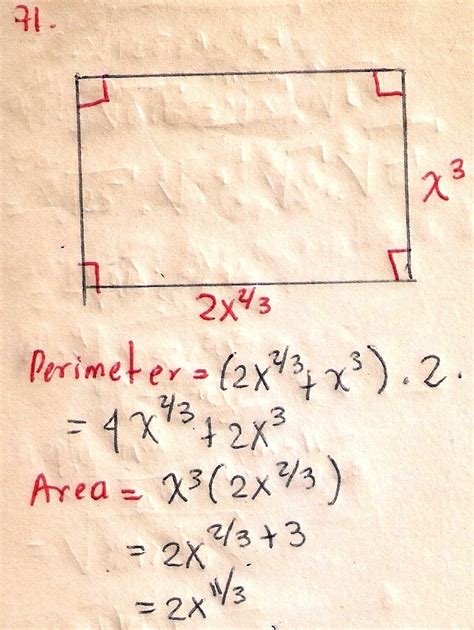 71.
x³
2x^2/3
Perimeter = (2x^2/3 + x³) . 2.
= 4x^2/3 + 2x³
Area = x³(2x^2/3)
= 2x^2/3 + 3
= 2x^11/3